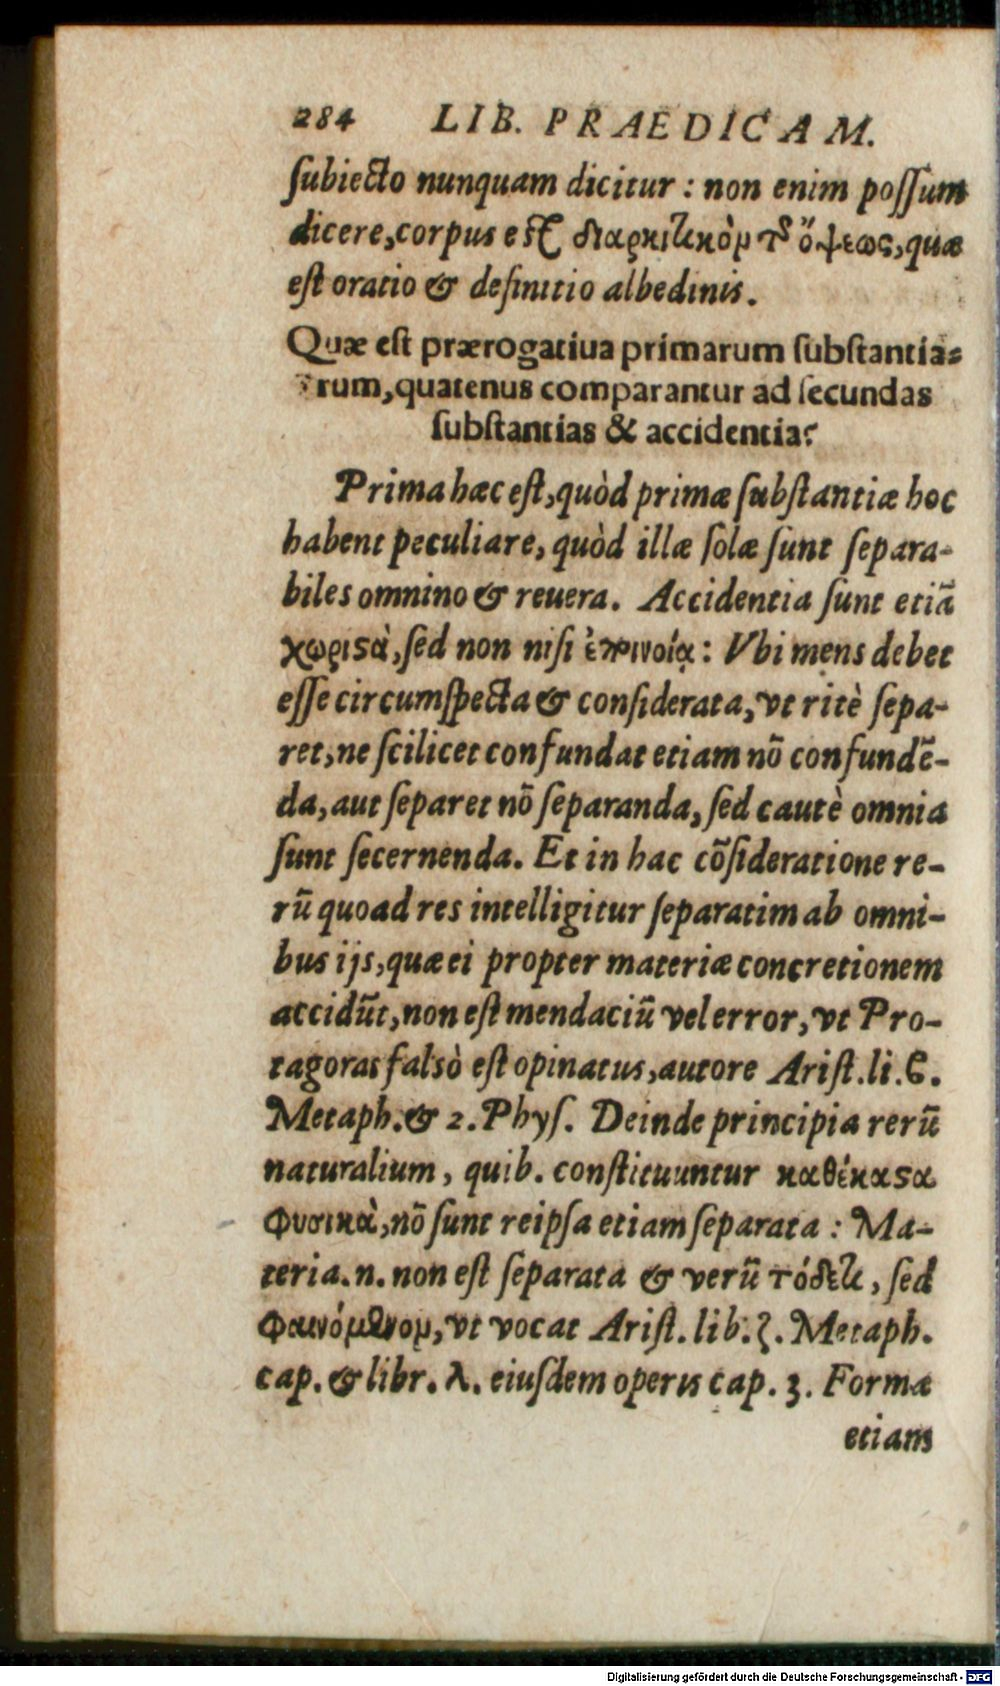 284 LIB. PRAEDICAM.
ſubiecto nunquam dicitur : non enim poſſum
dicere, corpus eſt διακριτικὸν τ῀ ὄψεως, quæ
eſt oratio & definitio albedinis.
Quæ eſt prærogatiua primarum ſubſtantia-
rum, quatenus comparantur ad ſecundas
ſubſtantias & accidentia?
Prima hæc eſt, quòd primæ ſubſtantiæ hoc
habent peculiare, quòd illæ ſolæ ſunt ſepara-
biles omnino & reuera. Accidentia ſunt etiã
χωριϛὰ, ſed non niſi ἐπινοίᾳ : Vbi mens debet
eſſe circumſpecta & conſiderata, vt ritè ſepa-
ret, ne ſcilicet confundat etiam nõ confundẽ-
da, aut ſeparet nõ ſeparanda, ſed cautè omnia
ſunt ſecernenda. Et in hac cõſideratione re-
rũ quoad res intelligitur ſeparatim ab omni-
bus ijs, quæ ei propter materiæ concretionem
accidũt, non eſt mendaciũ vel error, vt Pro-
tagoras falsò eſt opinatus, autore Ariſt. li. 6.
Metaph. & 2. Phyſ. Deinde principia rerũ
naturalium, quib. conſtituuntur καθέκαϛα
φυσικὰ, nõ ſunt reipſa etiam ſeparata : Ma-
teria .n. non eſt ſeparata & verũ τόδετι, ſed
φαινόμενον, vt vocat Ariſt. lib. ζ. Metaph.
cap. & libr. λ. eiuſdem operis cap. 3. Formæ
etiam
Digitalisierung gefördert durch die Deutsche Forschungsgemeinschaft - DFG